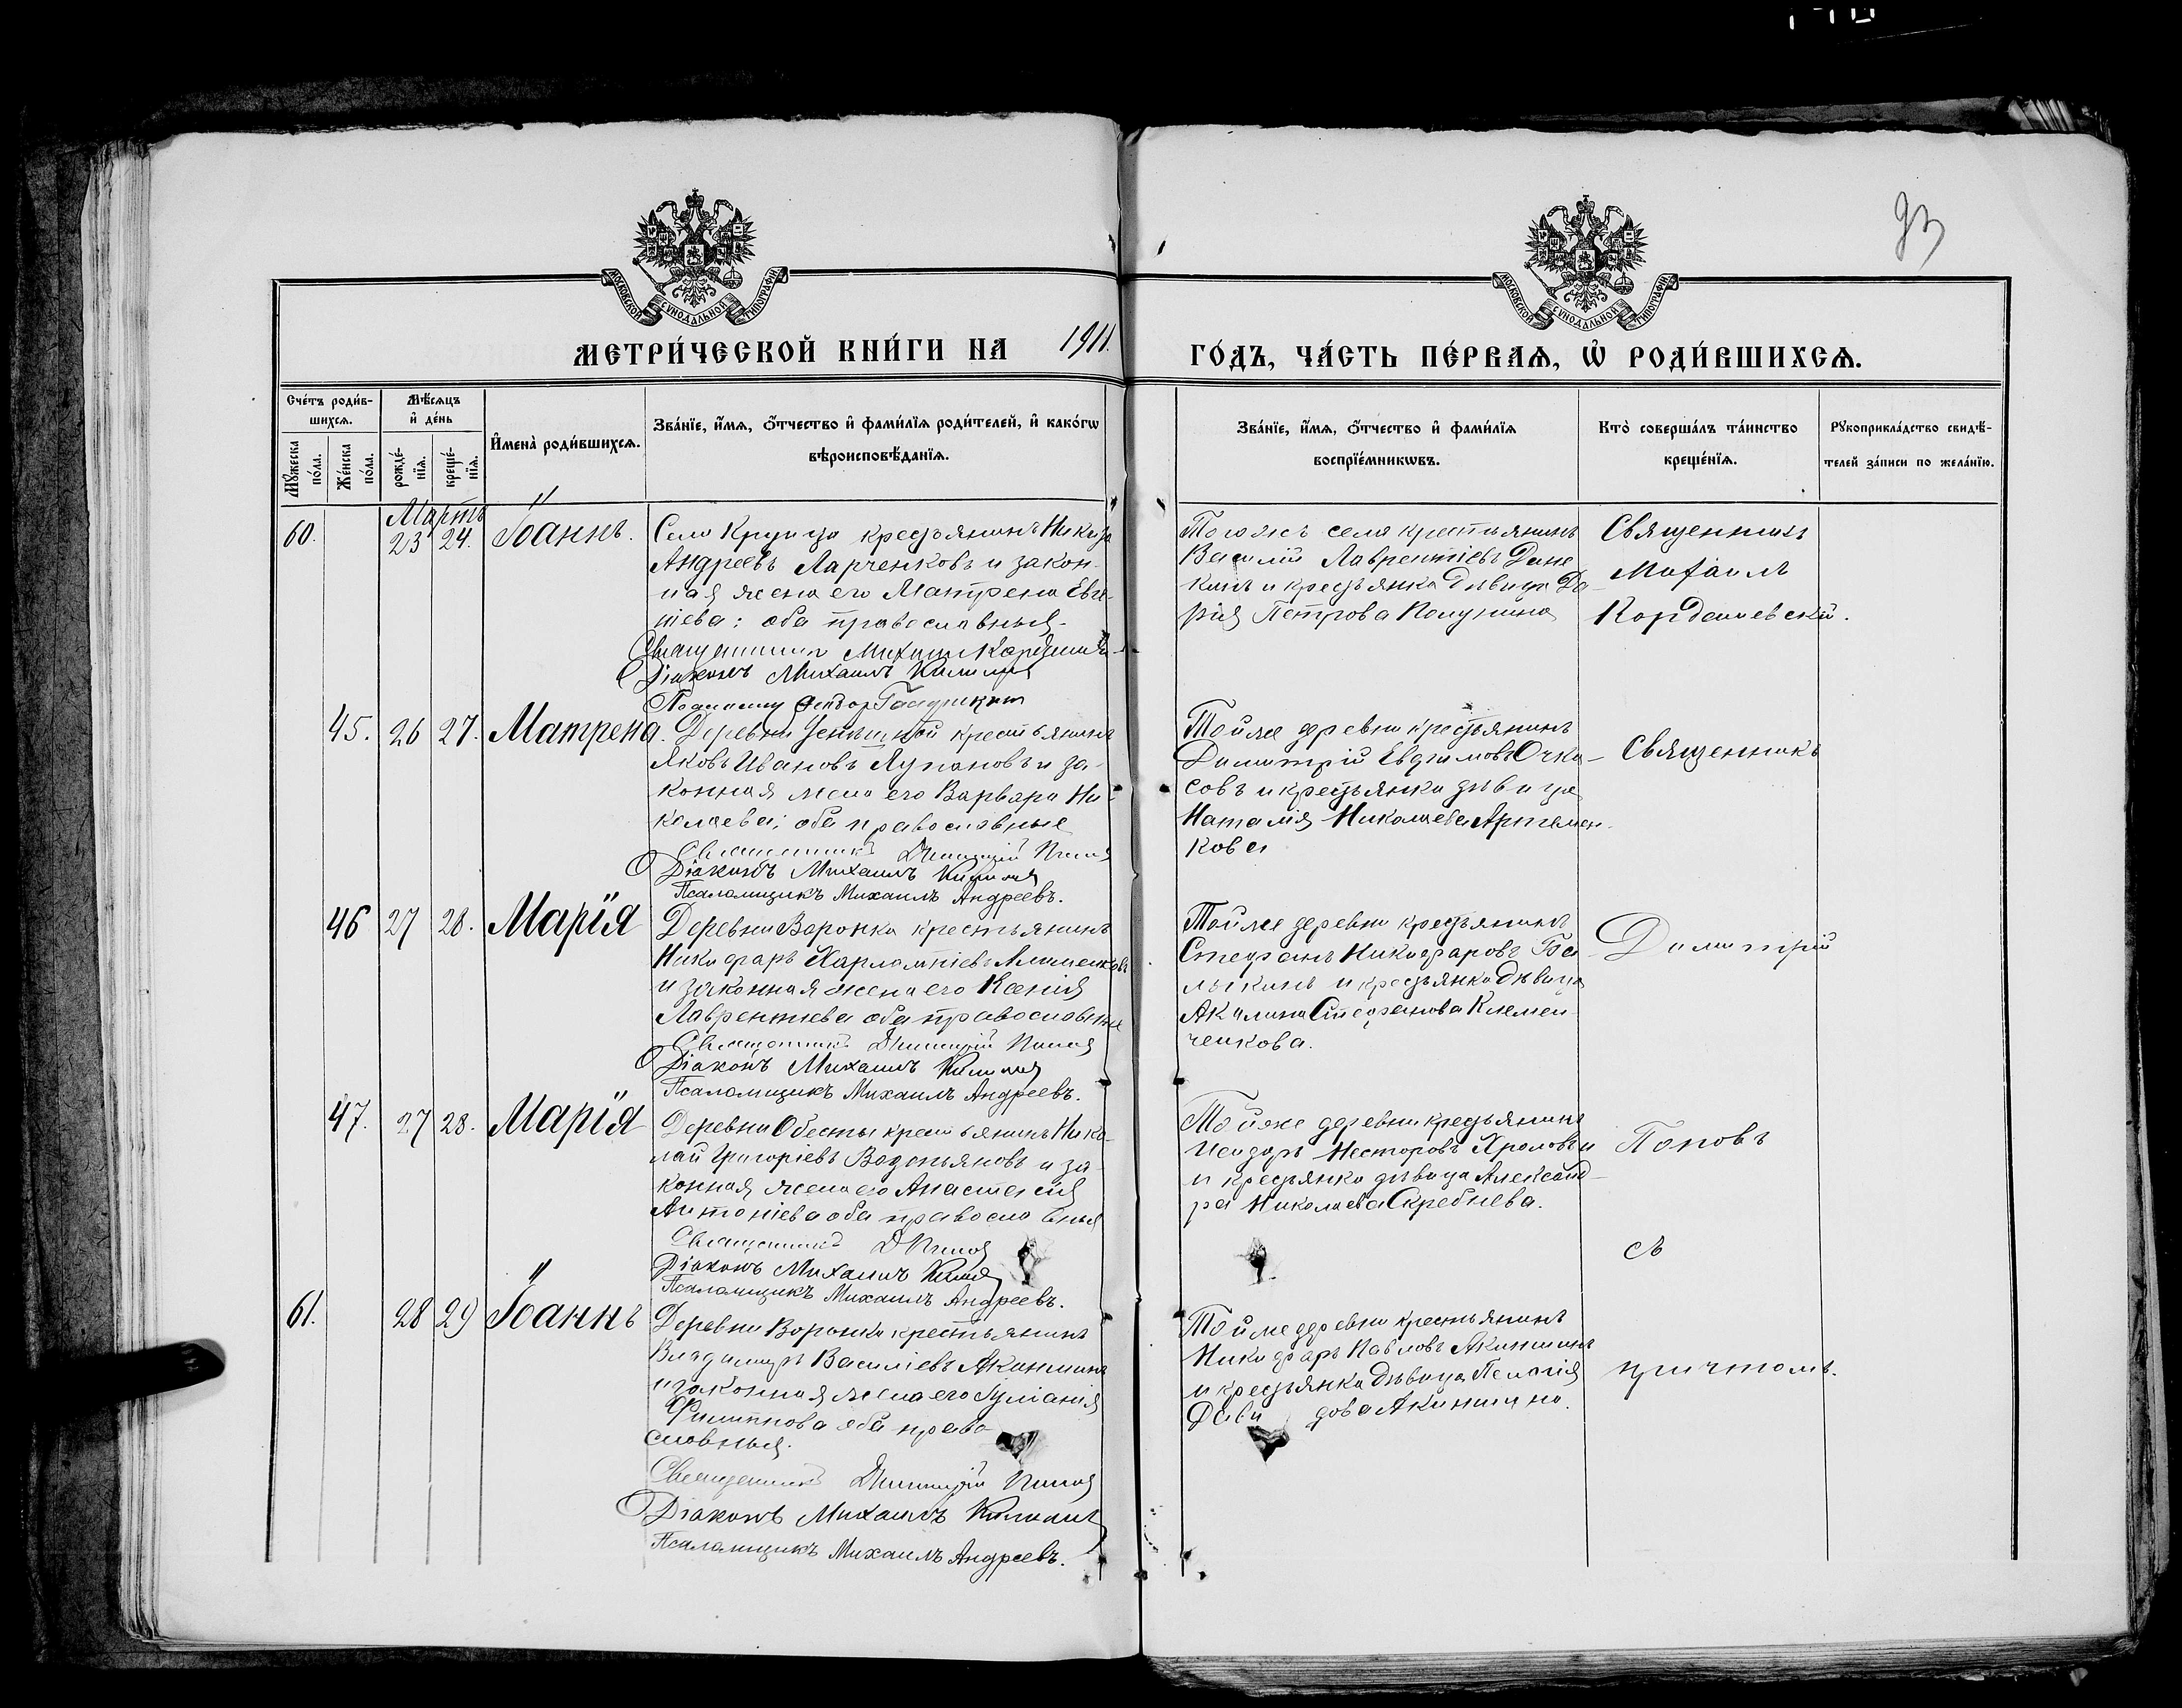 93
МОСКОВСКОЙ СѴНОДАЛЬНОЙ ТИПОГРАФІИ
МОСКОВСКОЙ СѴНОДАЛЬНОЙ ТИПОГРАФІИ
МЕТРИ́ЧЕСКОЙ КНИ́ГИ НА 1911. ГО́ДЪ, ЧА́СТЬ ПЕ́РВАѦ, Ѡ҆ РОДИ́ВШИХСѦ.
Сче́тъ роди́в-
шихсѧ.
Мꙋ́жеска по́ла.
Же́нска по́ла.
Мѣ́сѧцъ
и҆ де́нь
рожде́-
нїѧ.
креще́-
нїѧ.
И҆мена̀ роди́вшихсѧ.
Зва́нїе, и҆́мѧ, ѻ҆́тчество и҆ фами́лїѧ роди́телей, и҆ како́гѡ
вѣроисповѣ́данїѧ.
Зва́нїе, и҆́мѧ, ѻ҆́тчество и҆ фами́лїѧ
воспрїе́мникѡвъ.
Кто̀ соверша́лъ та́инство
креще́нїѧ.
Рꙋкоприкла́дство свидѣ́-
телей за́писи по жела́нїю.
Мартъ
60.
23
24.
Іоаннъ.
Села Крупца крестьянинъ Никита
Андреевъ Ларченковъ и закон-
ная жена его Матрена Евге-
ніева: оба православныя.
Священникъ Михаилъ
Діаконъ Михаилъ
Тогоже села крестьянинъ
Василій Лаврентіевъ Дине-
кинъ и крестьянка дѣвица Да-
рія Петрова Полунина
Священникъ
Михаилъ
Кордашевскій.
45.
26
27.
Матрена.
Деревни крестьянинъ
Яковъ Ивановъ Лупановъ и за-
конная жена его Варвара Ни-
колаева; оба православные
Священникъ Димитрій Поповъ
Діаконъ Михаилъ
Псаломщикъ Михаилъ Андреевъ.
Тойже деревни крестьянинъ
Димитрій Евфимовъ Очка-
совъ и крестьянка дѣвица
Наталія Николаева Артемен-
кова
Священникъ
46
27
28.
Марія
Деревни Воронка крестьянинъ
Никифоръ Харлампіевъ
и законная жена его Ксенія
Лаврентіева оба православные
Священникъ Димитрій Поповъ
Діаконъ Михаилъ
Псаломщикъ Михаилъ Андреевъ.
Тойже деревни крестьянинъ
Стефанъ Никифоровъ Ба-
лыкинъ и крестьянка дѣвица
Акилина Стефанова Клемен-
ченкова.
Димитрій
47.
27
28.
Марія
Деревни Обесты крестьянинъ Нико-
лай Григоріевъ Водопьяновъ и за-
конная жена его Анастасія
Антоніева оба православныя
Священникъ Д Поповъ
Діаконъ Михаилъ
Псаломщикъ Михаилъ Андреевъ.
Тойже деревни крестьянинъ
Исидоръ Несторовъ Хроловъ и
и крестьянка дѣвица Александ-
ра Николаева Скребнева.
Поповъ
съ
61.
28
29
Іоаннъ
Деревни Воронка крестьянинъ
Владимиръ Василіевъ Акиншинъ
и законная жена его Іуліанія
Филиппова оба право-
славныя.
Священникъ Димитрій Поповъ
Діаконъ Михаилъ
Псаломщикъ Михаилъ Андреевъ.
Тойже деревни крестьянинъ
Никифоръ Павловъ Акиншинъ
и крестьянка дѣвица Пелагія
Дави дова Акиншина.
причтомъ.